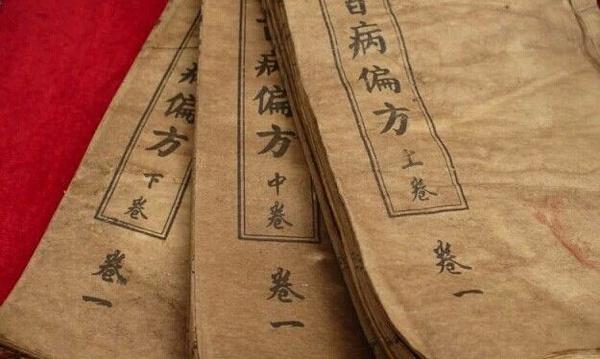 百病偏方
上卷
卷一
病偏方
中卷
卷一
病偏方
下卷
卷一